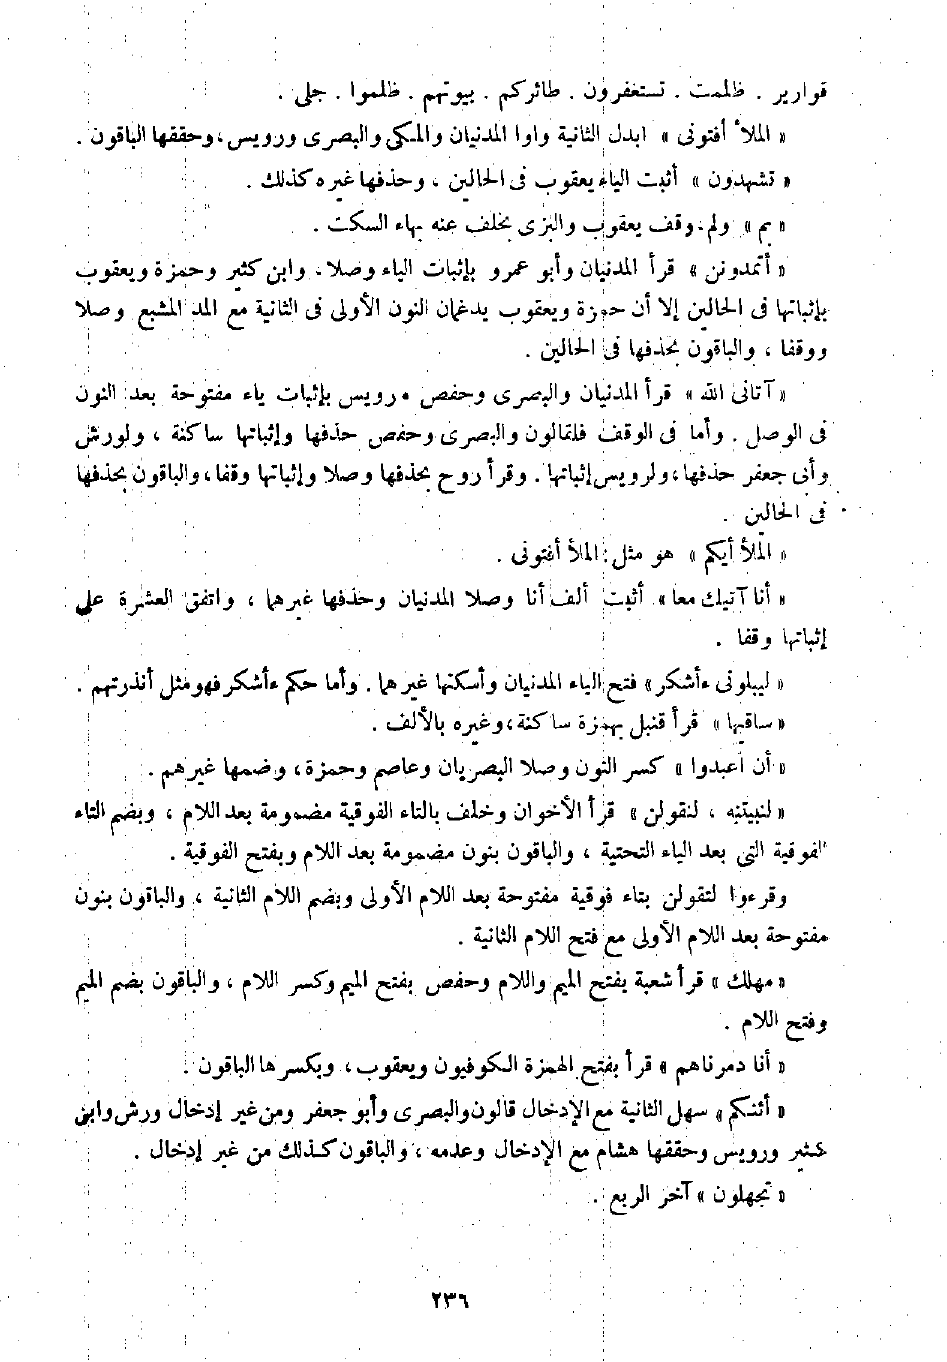 قوارير . ظلمت . تستغفرون . طائركم . بيوتهم . ظلموا . جلى .
« الملأ أفتونى » ابدل الثانية واوا المدنيان والمكى والبصرى ورويس ، وحققها الباقون .
« تشهدون » أثبت الياء يعقوب فى الحالين ، وحذفها غيره كذلك .
« بم » ولم . وقف يعقوب والبزى بخلف عنه بهاء السكت .
« أتمدونن » قرأ المدنيان وأبو عمرو بإثبات الياء وصلا ، وابن كثير وحمزة ويعقوب
بإثباتها فى الحالين إلا أن حمزة ويعقوب يدغمان النون الأولى فى الثانية مع المد المشبع وصلا
ووقفا ، والباقون بحذفها فى الحالين .
« آتانى الله » قرأ المدنيان والبصرى وحفص ورويس بإثبات ياء مفتوحة بعد النون
فى الوصل . وأما فى الوقف فلقالون والبصرى وحفص حذفها وإثباتها ساكنة ، ولورش
وأبى جعفر حذفها ، ولرويس إثباتها . وقرأ روح بحذفها وصلا وإثباتها وقفا ، والباقون بحذفها
فى الحالين .
« الملأ أيكم » هو مثل : الملأ أفتونى .
« أنا آتيك معا » أثبت ألف أنا وصلا المدنيان وحذفها غيرهما ، واتفق العشرة على
إثباتها وقفا .
« ليبلونى ءأشكر » فتح الياء المدنيان وأسكنها غيرهما . وأما حكم ءأشكر فهو مثل أنذرتهم .
« ساقيها » قرأ قنبل بهمزة ساكنة ، وغيره بالألف .
« أن اعبدوا » كسر النون وصلا البصريان وعاصم وحمزة ، وضمها غيرهم .
« لنبيتنه ، لنقولن » قرأ الأخوان وخلف بالتاء الفوقية مضمومة بعد اللام ، وبضم التاء
الفوقية التى بعد الياء التحتية ، والباقون بنون مضمومة بعد اللام وبفتح الفوقية .
وقرءوا لتقولن بتاء فوقية مفتوحة بعد اللام الأولى وبضم اللام الثانية ، والباقون بنون
مفتوحة بعد اللام الأولى مع فتح اللام الثانية .
« مهلك » قرأ شعبة بفتح الميم واللام وحفص بفتح الميم وكسر اللام ، والباقون بضم الميم
وفتح اللام .
« أنا دمرناهم » قرأ بفتح الهمزة الكوفيون ويعقوب ، وبكسرها الباقون .
« أئنكم » سهل الثانية مع الإدخال قالون والبصرى وأبو جعفر ومن غير إدخال ورش وابن
كثير ورويس وحققها هشام مع الإدخال وعدمه ، والباقون كذلك من غير إدخال .
« تجهلون » آخر الربع .
٢٣٦